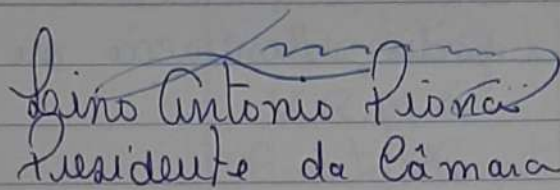 Lino Antonio Pionai
Presidente da Câmara